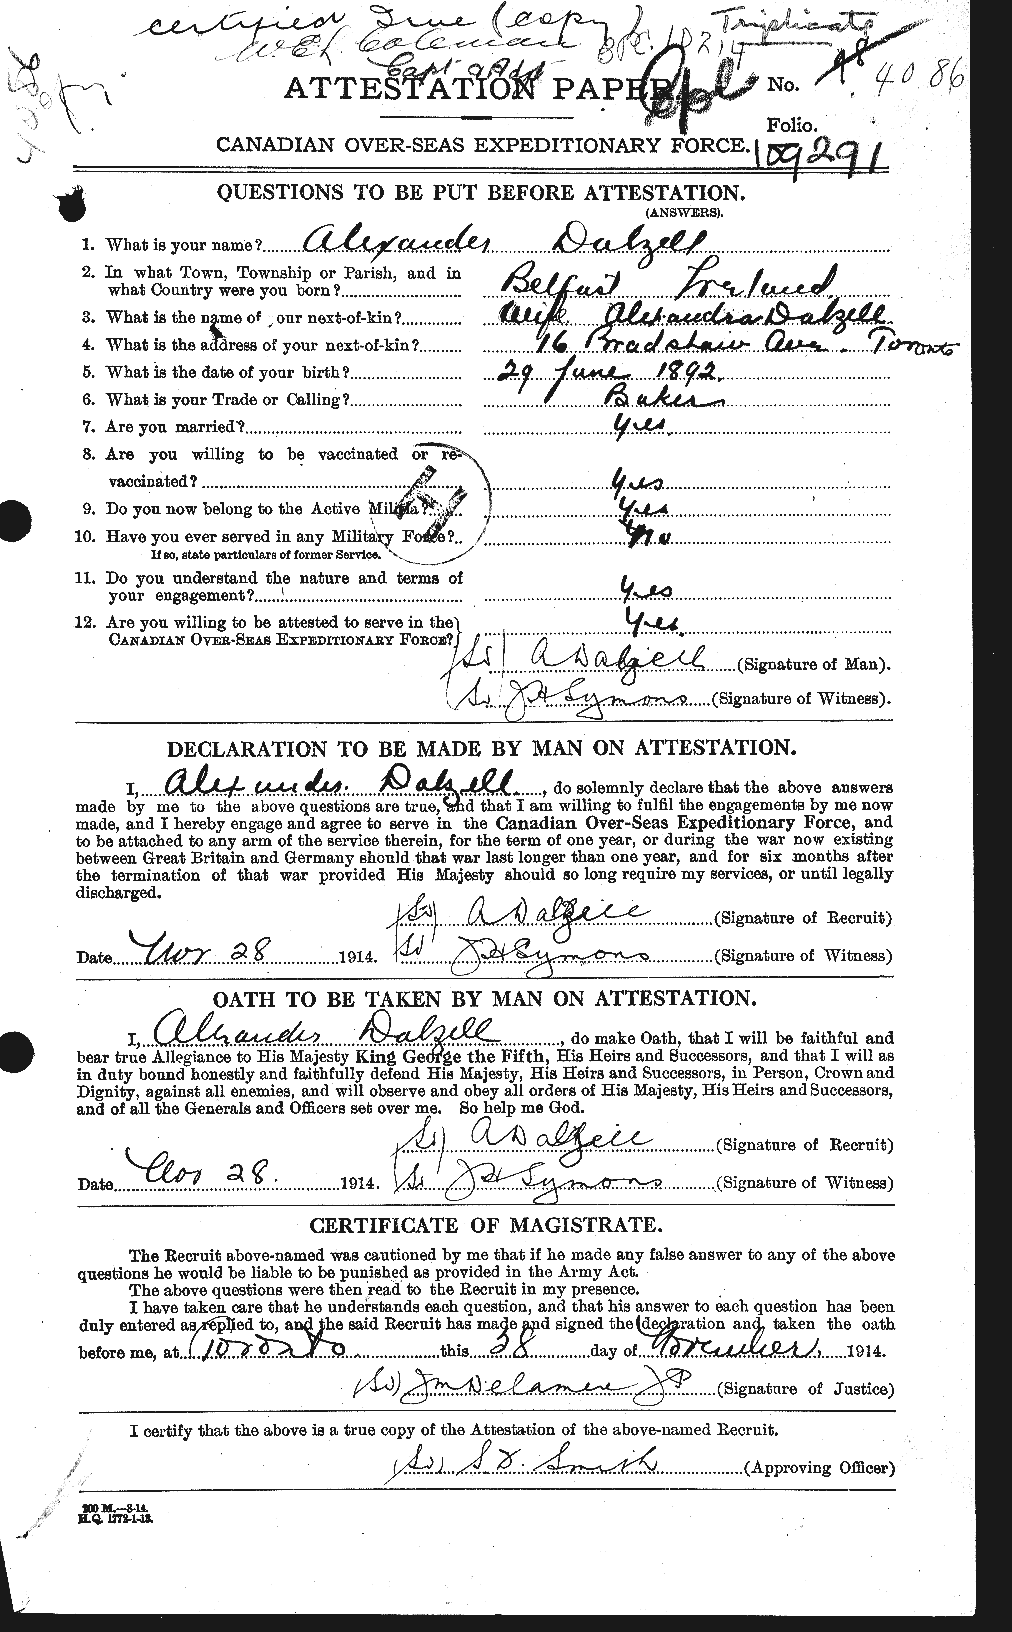 certified True (copy) Triplicate
W.E.L. Coleman
Capt a Adjt
ATTESTATION PAPER. No. 4086
Folio.
CANADIAN OVER-SEAS EXPEDITIONARY FORCE. 109291
QUESTIONS TO BE PUT BEFORE ATTESTATION.
(ANSWERS).
1. What is your name? Alexander Dalzell
2. In what Town, Township or Parish, and in
what Country were you born? Belfast Ireland
3. What is the name of our next-of-kin? Wife Alexandra Dalzell
4. What is the address of your next-of-kin? 16 Bradshaw Ave. Toronto
5. What is the date of your birth? 29 June 1892.
6. What is your Trade or Calling? Baker
7. Are you married? Yes.
8. Are you willing to be vaccinated or re-
vaccinated? Yes
9. Do you now belong to the Active Militia? Yes
10. Have you ever served in any Military Force? No
If so, state particulars of former Service.
11. Do you understand the nature and terms of
your engagement? Yes
12. Are you willing to be attested to serve in the
CANADIAN OVER-SEAS EXPEDITIONARY FORCE? Yes.
(Sd) A Dalzell (Signature of Man).
(Sd) J H Symons (Signature of Witness).
DECLARATION TO BE MADE BY MAN ON ATTESTATION.
I, Alexander Dalzell, do solemnly declare that the above answers
made by me to the above questions are true, and that I am willing to fulfil the engagements by me now
made, and I hereby engage and agree to serve in the Canadian Over-Seas Expeditionary Force, and
to be attached to any arm of the service therein, for the term of one year, or during the war now existing
between Great Britain and Germany should that war last longer than one year, and for six months after
the termination of that war provided His Majesty should so long require my services, or until legally
discharged.
(Sd) A Dalzell (Signature of Recruit)
Date Nov 28 1914. (Sd) J H Symons (Signature of Witness)
OATH TO BE TAKEN BY MAN ON ATTESTATION.
I, Alexander Dalzell, do make Oath, that I will be faithful and
bear true Allegiance to His Majesty King George the Fifth, His Heirs and Successors, and that I will as
in duty bound honestly and faithfully defend His Majesty, His Heirs and Successors, in Person, Crown and
Dignity, against all enemies, and will observe and obey all orders of His Majesty, His Heirs and Successors,
and of all the Generals and Officers set over me. So help me God.
(Sd) A Dalzell (Signature of Recruit)
Date Nov 28. 1914. (Sd) J H Symons (Signature of Witness)
CERTIFICATE OF MAGISTRATE.
The Recruit above-named was cautioned by me that if he made any false answer to any of the above
questions he would be liable to be punished as provided in the Army Act.
The above questions were then read to the Recruit in my presence.
I have taken care that he understands each question, and that his answer to each question has been
duly entered as replied to, and the said Recruit has made and signed the declaration and taken the oath
before me, at Toronto this 28 day of November 1914.
(Sd) J M Delamere J P (Signature of Justice)
I certify that the above is a true copy of the Attestation of the above-named Recruit.
(Sd) S D. Smith (Approving Officer)
200 M.—8-14.
H.Q. 1772-1-13.